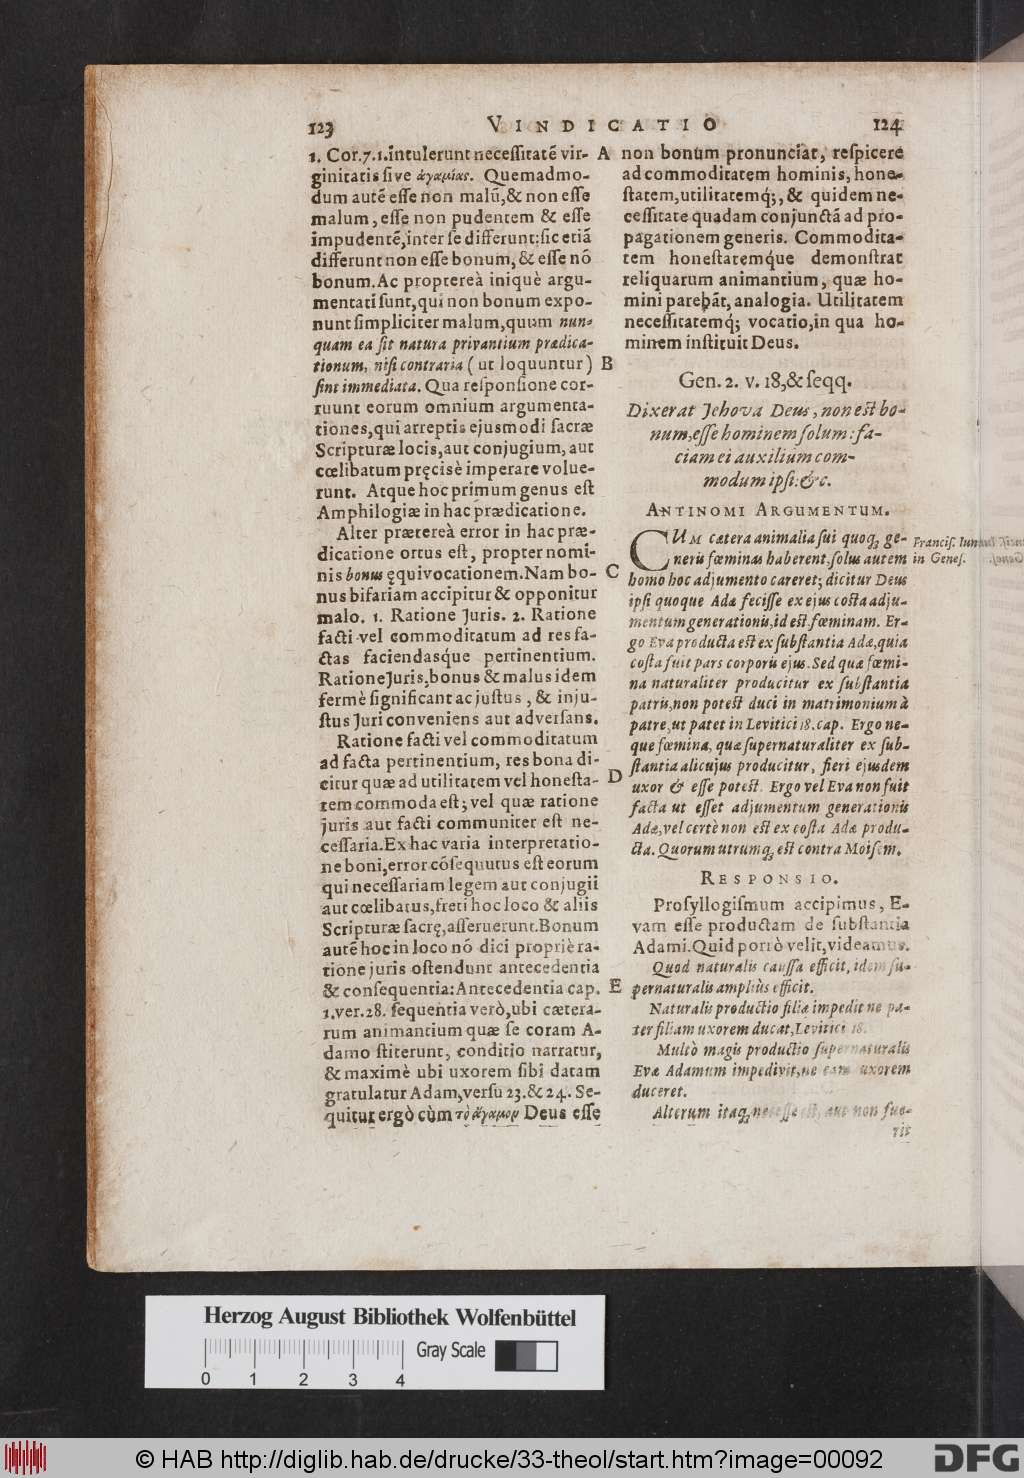 123 VINDICATIO 124
1. Cor.7.1.intulerunt necessitatē vir-
ginitatis sive ἀγαμίας. Quemadmo-
dum autē esse non malū,& non esse
malum, esse non pudentem & esse
impudentē,inter se differunt:sic etiā
differunt non esse bonum, & esse nō
bonum. Ac proptereà iniquè argu-
mentati sunt,qui non bonum expo-
nunt simpliciter malum,quum nun-
quam ea sit natura privantium prædica-
tionum, nisi contraria (ut loquuntur)
sint immediata. Qua responsione cor-
ruunt eorum omnium argumenta-
tiones,qui arreptis ejusmodi sacræ
Scripturæ locis,aut conjugium, aut
cœlibatum pręcisè imperare volue-
runt. Atque hoc primum genus est
Amphilogiæ in hac prædicatione.
Alter prætereà error in hac præ-
dicatione ortus est, propter nomi-
nis bonus ęquivocationem. Nam bo-
nus bifariam accipitur & opponitur
malo. 1. Ratione Juris. 2. Ratione
facti vel commoditatum ad res fa-
ctas faciendasq́ue pertinentium.
Ratione Juris,bonus & malus idem
fermè significant ac justus, & inju-
stus Juri conveniens aut adversans.
Ratione facti vel commoditatum
ad facta pertinentium, res bona di-
citur quæ ad utilitatem vel honesta-
tem commoda est; vel quæ ratione
juris aut facti communiter est ne-
cessaria. Ex hac varia interpretatio-
ne boni,error cōsequutus est eorum
qui necessariam legem aut conjugii
aut cœlibatus,freti hoc loco & aliis
Scripturæ sacrę,asseruerunt. Bonum
autē hoc in loco nō dici propriè ra-
tione juris ostendunt antecedentia
& consequentia: Antecedentia cap.
1.ver.28. sequentia verò,ubi cætera-
rum animantium quæ se coram A-
damo stiterunt, conditio narratur,
& maximè ubi uxorem sibi datam
gratulatur Adam,versu 23.& 24. Se-
quitur ergò cùm τὸ ἄγαμον Deus esse
A
B
C
D
E
non bonum pronunciat, respicere
ad commoditatem hominis, hone-
statem,utilitatemq́;, & quidem ne-
cessitate quadam conjunctâ ad pro-
pagationem generis. Commodita-
tem honestatemq́ue demonstrat
reliquarum animantium, quæ ho-
mini parebāt, analogia. Utilitatem
necessitatemq́; vocatio,in qua ho-
minem instituit Deus.
Gen. 2. v. 18,& seqq.
Dixerat Jehova Deus, non est bo-
num,esse hominem solum: fa-
ciam ei auxilium com-
modum ipsi: &c.
ANTINOMI ARGUMENTUM.
CUM cætera animalia sui quoq; ge-
neris fœminas haberent,solus autem
homo hoc adjumento careret; dicitur Deus
ipsi quoque Adæ fecisse ex ejus costa adju-
mentum generationis,id est,fœminam. Er-
go Eva producta est ex substantia Adæ,quia
costa fuit pars corporis ejus. Sed quæ fœmi-
na naturaliter producitur ex substantia
patris,non potest duci in matrimonium à
patre,ut patet in Levitici 18. cap. Ergo ne-
que fœmina, quæ supernaturaliter ex sub-
stantia alicujus producitur, fieri ejusdem
uxor & esse potest. Ergo vel Eva non fuit
facta ut esset adjumentum generationis
Adæ,vel certè non est ex costa Adæ produ-
cta. Quorum utrumq; est contra Moisem.
Francis. Iun
in Genes.
RESPONSIO.
Prosyllogismum accipimus, E-
vam esse productam de substantia
Adami. Quid porrò velit,videamus.
Quod naturalis caussa efficit, idem su-
pernaturalis ampliùs efficit.
Naturalis productio filiæ impedit ne pa-
ter filiam uxorem ducat,Levitici 18.
Multò magis productio supernaturalis
Evæ Adamum impedivit,ne eam uxorem
duceret.
Alterum itaq; necesse est, aut non fue-
rit
Herzog August Bibliothek Wolfenbüttel
Gray Scale
0 1 2 3 4
© HAB http://diglib.hab.de/drucke/33-theol/start.htm?image=00092
DFG